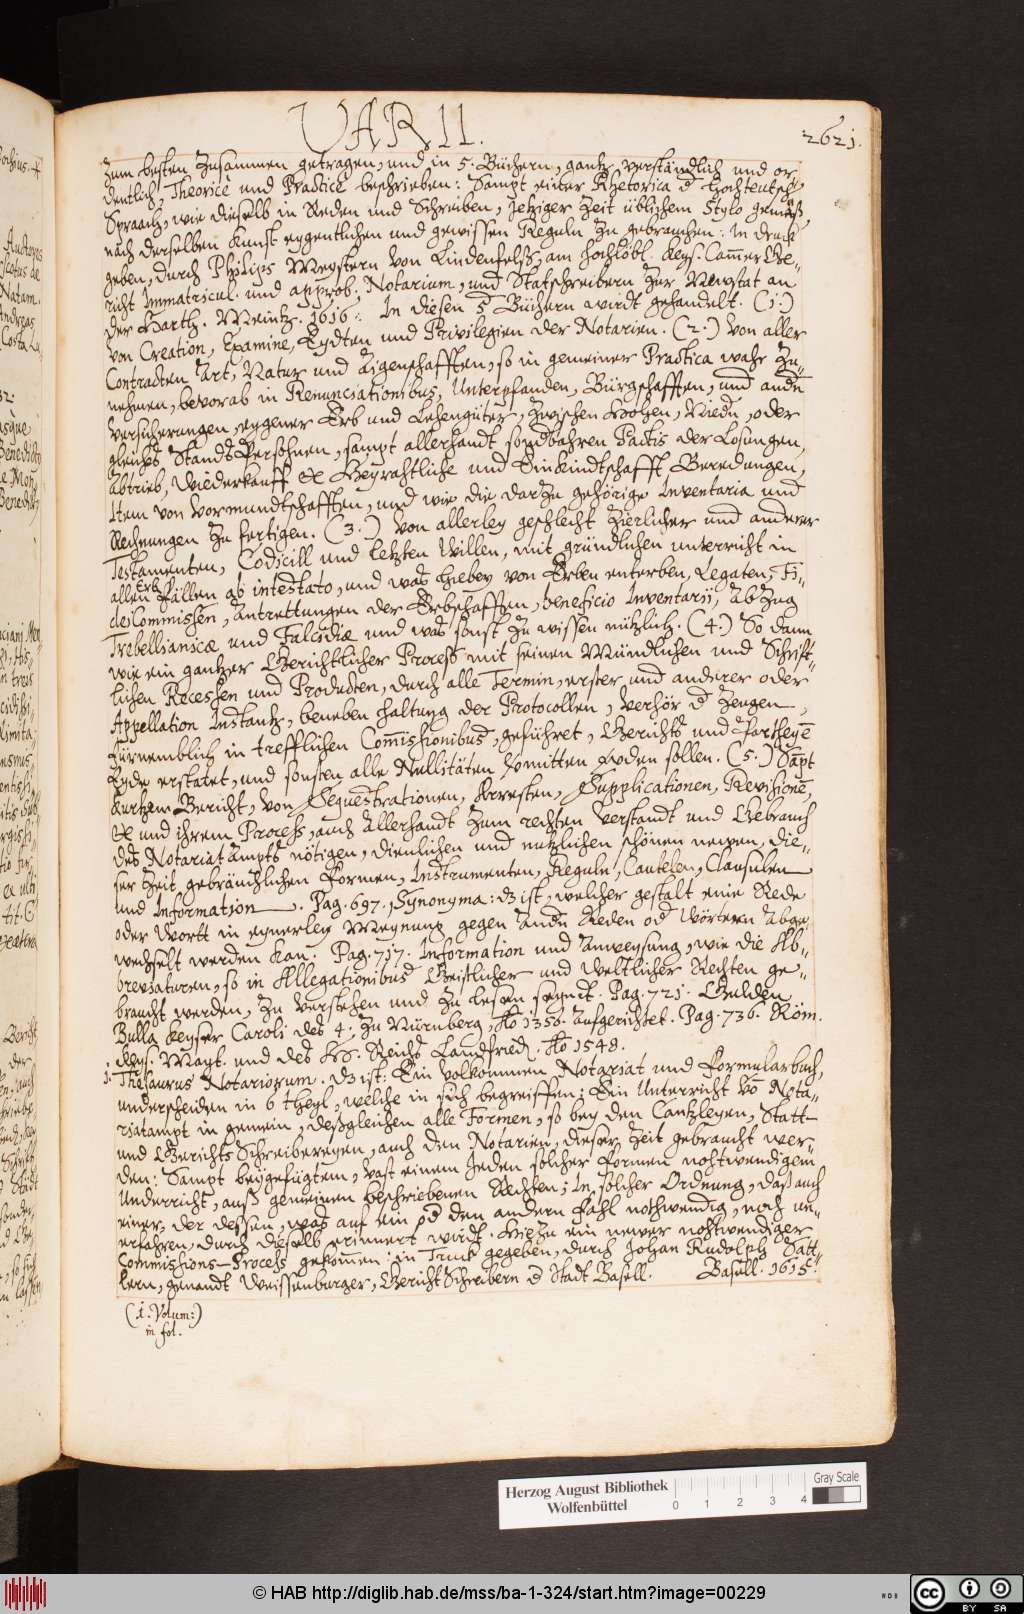 VARII.
2621.
zum besten zusammen getragen, und in 5. Büchern, gantz verständlich und or,,
dentlich, Theoricè und Practicè beschrieben: Sampt einer Rhetorica d Hochteutsch
Spraach, wie dieselb in Reden und Schreiben, Jetziger Zeit üblichem Stylo gemäß,
nach derselben Kunst eygentlichen und gewissen Reguln zu gebrauchen: In druck
geben, durch Philips Meystern von Lindenfelß, am hochlöbl. Keys. Cammer Ge,,
richt Immatricul. und approb. Notarium, und Statschreibern zur Newstat an
der Harth. Meintz. 1616. In diesen 5 Büchern wirdt gehandelt. (1.)
von Creation, Examine, Eydten und Privilegien der Notarien. (2.) Von aller
Contracten Art, Natur und Aigenschafften, so in gemeiner Practica wahr zu,,
nehmen, bevorab in Renunciationibus, Unterpfanden, Bürgschafften, und andn
versicherungen, eygener Erb und Lehengüter, zwischen Hohen, Niedn, oder
gleichs Standts Persohnen, sampt allerhandt sondbahren Pactis der Losungen,
Abtrieb, Wiederkauff &c Heyrahtliche und Einkindtschafft Beredungen,
Item von Vormundtschafften, und wie die darzu gehörige Inventaria und
Rechnungen zu fertigen. (3.) Von allerley geschlecht zierlicher und anderer
Testamenten, Codicill und letzten Willen, mit gründlichen unterricht in
allen Erb Fällen ab intestato, und was hiebey von Erben enterben, Legaten, Fi,,
deiCommissen, Antrettungen der Erbschafften, beneficio Inventarii, Abzug
Trebellianicæ und Falcidiæ und was sonst zu wissen nützlich. (4.) So dann
wie ein gantzer Gerichtlicher Process mit seinen Mündlichen und Schrift,,
lichen Recessen und Producten, durch alle Termin, erster und anderer oder
Appellation Instantz, beneben haltung der Protocollen, Verhör d Zeugen,
fürnemblich in trefflichen Com̄issionibus, geführet, Gerichts und Partheyē
Eyde erstatet, und sonsten alle Nullitäten vermitten werden sollen. (5.) Sāpt
kurtzem Bericht, von Sequestrationen, Arresten, Supplicationen, Revisionē,
&c und ihrem Process, auch allerhandt zum rechten verstandt und Gebrauch
des Notariat Ampts nötigen, dienlichen und nützlichen schönen newen, die,,
ser Zeit gebräuchlichen Formen, Instrumenten, Reguln, Cautelen, Clausulen
und Information. Pag. 697. Synonyma: dz ist, welcher gestalt eine Rede
oder Wortt in eynerley Meynung gegen Andn Reden od Wörtern Abge,,
wechselt werden kan. Pag. 717. Information und Anweysung, wie die Ab,,
breviaturen, so in Allegationibus Geistlicher und Weltlicher Rechten ge,,
braucht werden, zu verstehen und zu lesen seyndt. Pag. 721. Gulden
Bulla Keyser Caroli des 4. zu Nürnberg, Ao 1356. aufgerichtet. Pag. 736. Röm.
Keys. Mayt. und des H. Reichs Landfried. Ao 1548.
1. Thesaurus Notariorum. dz ist: Ein volkommen Notariat und Formularbuch,
underscheiden in 6 theyl, welche in sich begreiffen: Ein Unterricht vō Nota,,
riatampt in gemein, deßgleichen alle Formen, so bey den Cantzleyen, Statt-
und Gerichts Schreibereyen, auch den Notarien, dieser Zeit gebraucht wer,,
den: Sampt beygefügtem, vast einem Jeden solcher Formen nohtwendigem
Underricht, auß gemeinen beschriebenen Rechten; In solcher Ordnung, daß auch
einer, der dessen, was auf ein od den andern Fahl nothwendig, noch un,,
erfahren, durch dieselb erinnert wirdt. Hiezu ein newer nohtwendiger
Commissions-Process gekom̄en: in Truck gegeben, durch Johan Rudolph Satt,,
lern, genandt Weissenburger, Gericht Schreibern d Stadt Basell. Basell. 1615.
(1. Volum:)
in fol.
Herzog August Bibliothek
Wolfenbüttel
Gray Scale
0 1 2 3 4
© HAB http://diglib.hab.de/mss/ba-1-324/start.htm?image=00229
cc BY SA